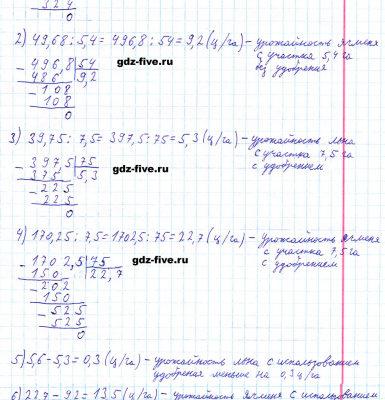 324
0
2) 49,68 : 5,4 = 496,8 : 54 = 9,2 (ц/га) – урожайность ячменя
с участка 5,4 га
без удобрения
- 496,8 | 54
486 | 9,2
- 108
108
0
gdz-five.ru
3) 39,75 : 7,5 = 397,5 : 75 = 5,3 (ц/га) – урожайность льна
с участка 7,5 га
с удобрением
- 397,5 | 75
375 | 5,3
- 225
225
0
gdz-five.ru
4) 170,25 : 7,5 = 1702,5 : 75 = 22,7 (ц/га) – урожайность ячменя
с участка 7,5 га
с удобрением
- 1702,5 | 75
150 | 22,7
- 202
150
- 525
525
0
gdz-five.ru
5) 5,6 - 5,3 = 0,3 (ц/га) – урожайность льна с использованием
удобрения меньше на 0,3 ц/га
6) 22,7 - 9,2 = 13,5 (ц/га) – урожайность ячменя с использованием